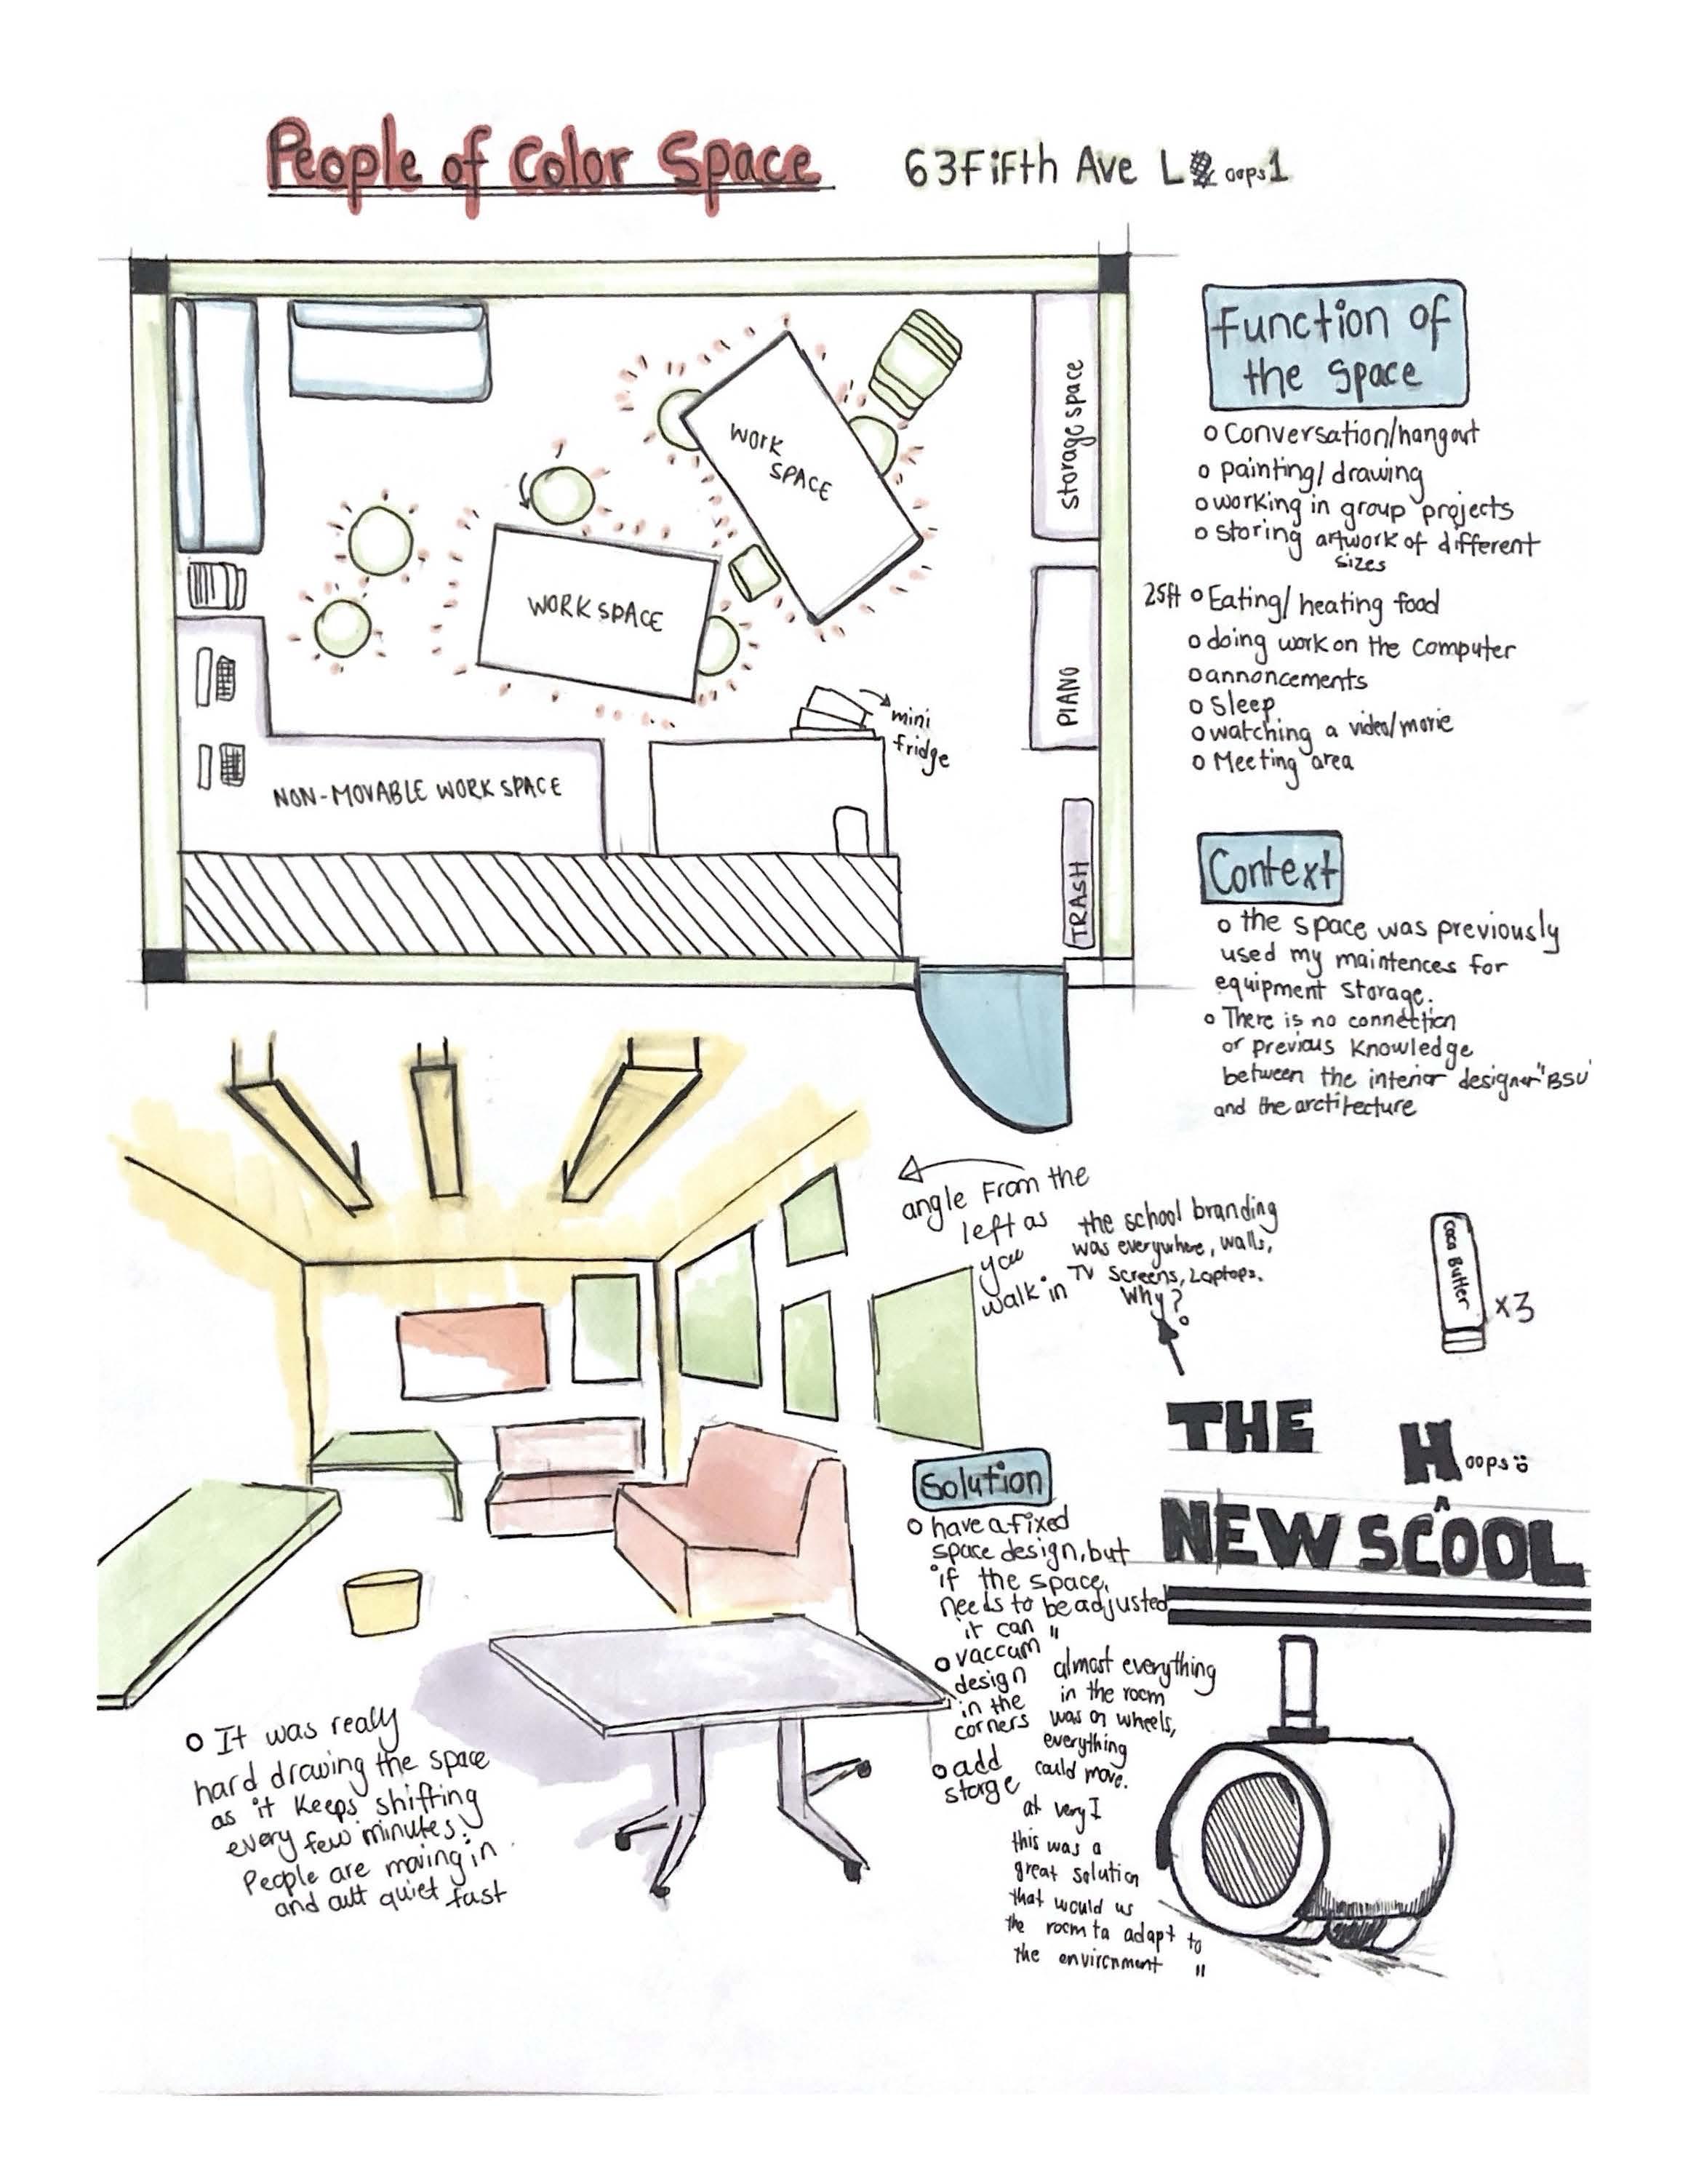 People of Color Space
63 Fifth Ave L oops 1
storage space
WORK
SPACE
WORK SPACE
PIANO
mini
fridge
NON-MOVABLE WORK SPACE
TRASH
Function of
the Space
o Conversation/hangout
o painting/drawing
o working in group projects
o storing artwork of different
sizes
25ft o Eating/heating food
o doing work on the computer
o annoncements
o Sleep
o watching a video/movie
o Meeting area
Context
o the space was previously
used my maintences for
equipment storage.
o There is no connection
or previous knowledge
between the interior designer "BSU"
and the architecture
angle From the
left as
you
walk in
the school branding
was everywhere, walls,
TV screens, Laptops.
Why?
coco Butter
x3
THE
H oops
NEW SCOOL
Solution
o have a fixed
space design, but
if the space,
needs to be adjusted
it can
o vaccum
design
in the
corners
o add
storge
" almost everything
in the room
was on wheels,
everything
could move.
at very I
this was a
great solution
that would us
the room to adapt to
the environment "
o It was really
hard drawing the space
as it keeps shifting
every few minutes.
People are moving in
and out quiet fast